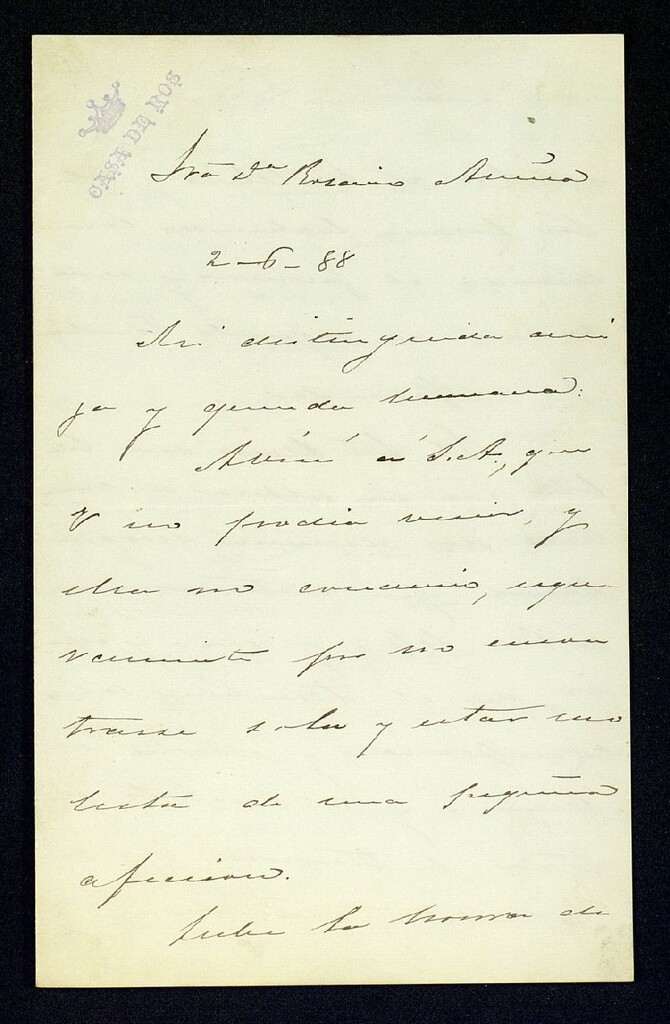 CASA DE NOS
Sra Da Rosario Acuña
2-6-88
Mi distinguida ami
ga y querida hermana:
Avisé á S.A., que
V no podia venir, y
ella no concurrió,
por no encon
trarse sola y estar mo
lesta de una pequeña
afeccion.
Tube la honra de